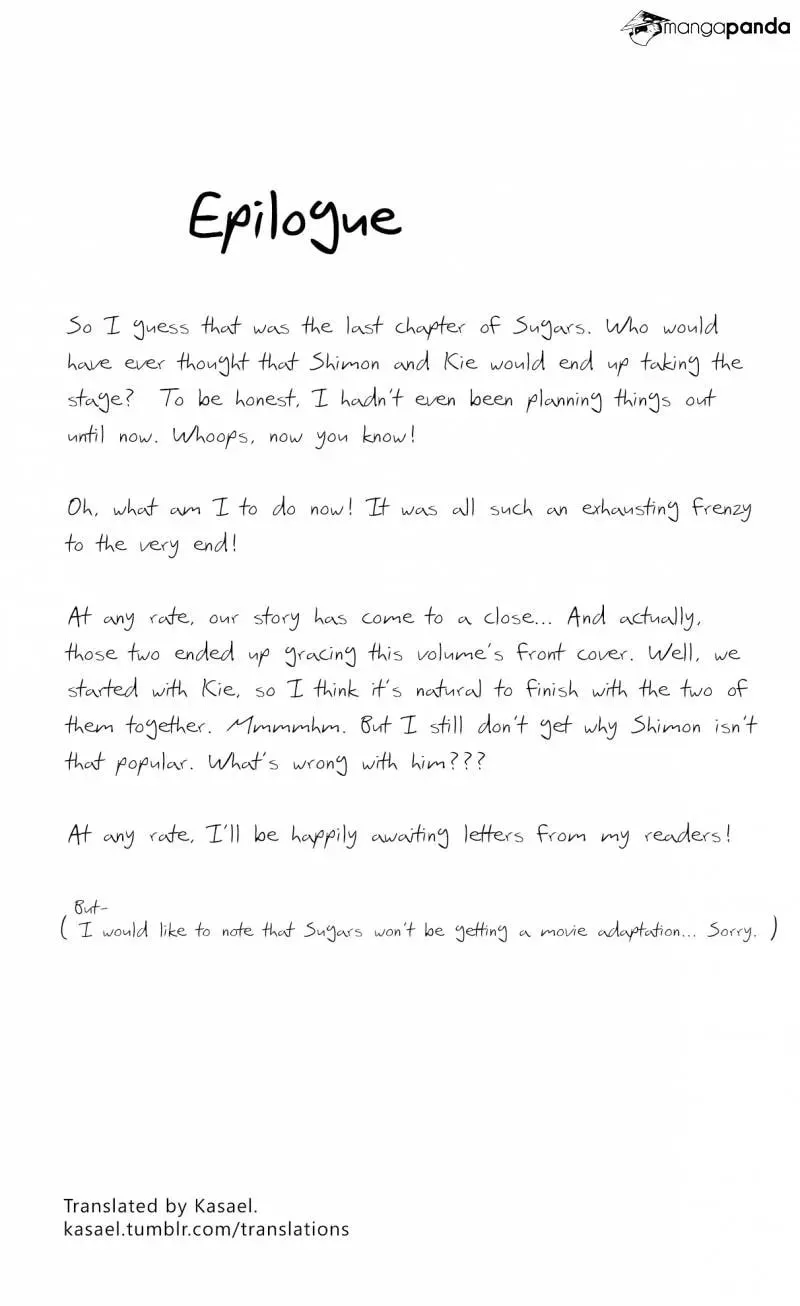 mangapanda
Epilogue
So I guess that was the last chapter of Sugars. Who would
have ever thought that Shimon and Kie would end up taking the
stage? To be honest, I hadn't even been planning things out
until now. Whoops, now you know!
Oh, what am I to do now! It was all such an exhausting frenzy
to the very end!
At any rate, our story has come to a close... And actually,
those two ended up gracing this volume's front cover. Well, we
started with Kie, so I think it's natural to finish with the two of
them together. Mmmmhm. But I still don't get why Shimon isn't
that popular. What's wrong with him???
At any rate, I'll be happily awaiting letters from my readers!
But-
( I would like to note that Sugars won't be getting a movie adaptation... Sorry. )
Translated by Kasael.
kasael.tumblr.com/translations